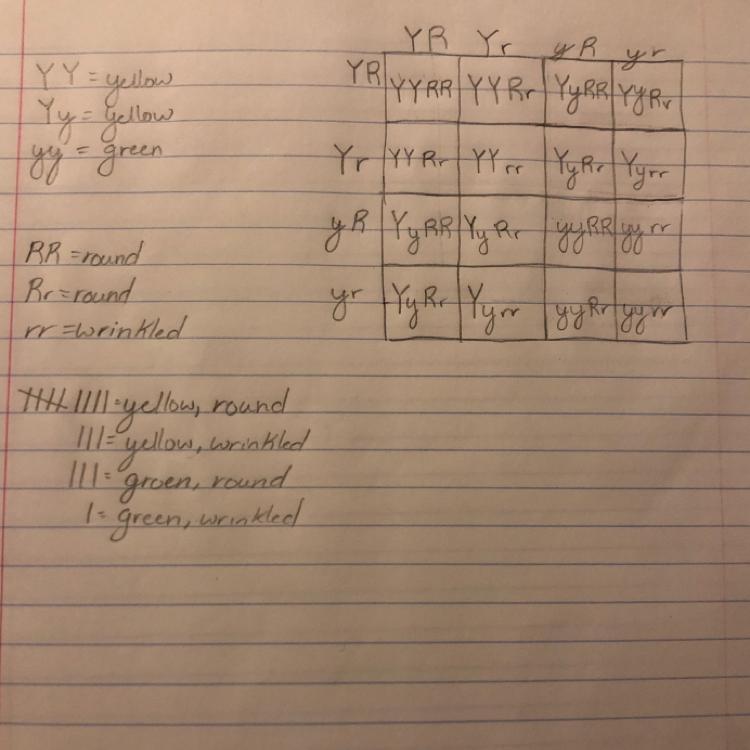 YR Yr yR yr
YY = yellow
Yy = yellow
yy = green
YR YYRR YYRr YyRR YyRr
Yr YYRr YYrr YyRr Yyrr
yR YyRR YyRr yyRR yyrr
yr YyRr Yyrr yyRr yyrr
RR = round
Rr = round
rr = wrinkled
IIII IIII = yellow, round
III = yellow, wrinkled
III = groen, round
I = green, wrinkled